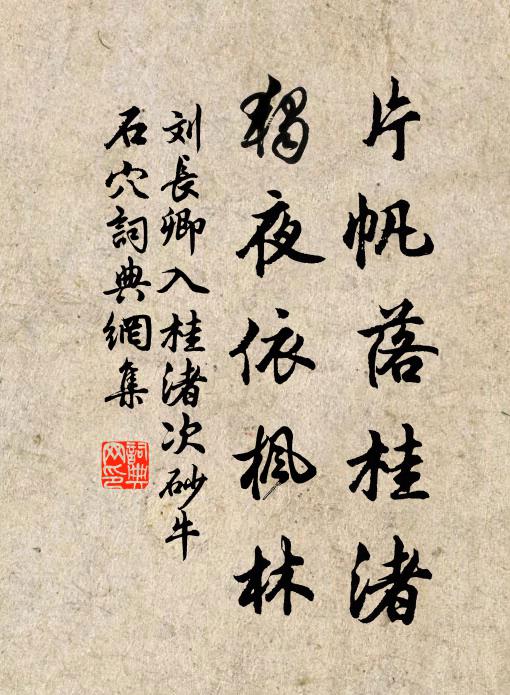 片帆落桂渚
獨夜依楓林
刘長卿入桂渚次砂牛
石穴詞典網集
詞典
网印